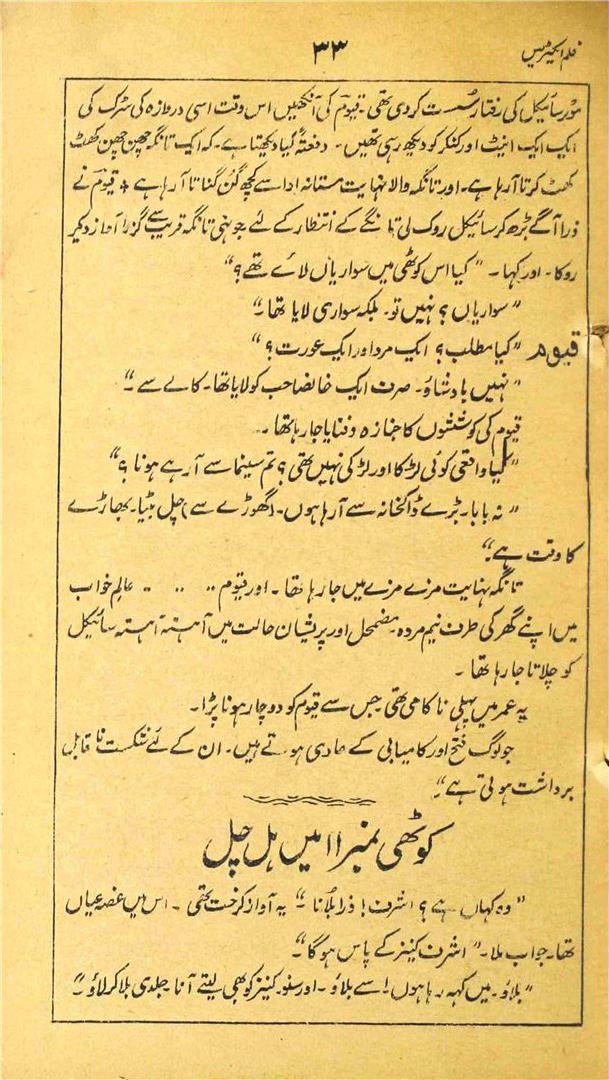 فلم ایکٹرس
۳۳
موٹر سائیکل کی رفتار سُست کر دی تھی۔ قیوم کی آنکھیں اس وقت اسی دروازہ کی سڑک کی
ایک ایک اینٹ اور کنکر کو دیکھ رہی تھیں۔ دفعتہً کیا دیکھتا ہے۔ کہ ایک تانگہ چھن چھن کھٹ
کھٹ کرتا آ رہا ہے۔ اور تانگہ والا نہایت مستانہ ادا سے کچھ گُن گُناتا آ رہا ہے + قیوم نے
ذرا آگے بڑھ کر سائیکل روک لی تانگے کے انتظار کے لئے جونہی تانگہ قریب سے گزرا آواز دیکر
روکا۔ اور کہا۔ "کیا اس کوٹھی میں سواریاں لائے تھے؟"
"سواریاں؟ نہیں تو۔ بلکہ سواری لایا تھا۔"
قیوم "کیا مطلب؟ ایک مرد اور ایک عورت؟"
"نہیں بادشاؤ۔ صرف ایک خانصاحب کو لایا تھا۔ کالے سے۔"
قیوم کی کوششوں کا جنازہ دفنایا جا رہا تھا۔
"کیا واقعی کوئی لڑکا اور لڑکی نہیں تھی؟ تم سینما سے آ رہے ہو نا؟"
"نہ بابا۔ بڑے ڈاکخانہ سے آ رہا ہوں۔ (گھوڑے سے) چل بیٹا۔ بھاڑے
کا وقت ہے۔"
تانگہ نہایت مزے مزے میں جا رہا تھا۔ اور قیوم .. .. .. عالمِ خواب
میں اپنے گھر کی طرف نیم مردہ۔ مضمحل اور پریشان حالت میں آہستہ آہستہ سائیکل
کو چلاتا جا رہا تھا۔
یہ عمر میں پہلی ناکامی تھی جس سے قیوم کو دو چار ہونا پڑا۔
جو لوگ فتح اور کامیابی کے عادی ہوتے ہیں۔ ان کے لئے شکست نا قابل
برداشت ہوتی ہے"۔
کوٹھی نمبر ۱۱ میں ہل چل
"وہ کہاں ہے؟ اشرف! ذرا بلانا۔" یہ آواز کرخت تھی۔ اس میں غصہ عیاں
تھا۔ جواب ملا۔ "اشرف کنیز کے پاس ہو گا"۔
"بلاؤ۔ میں کہہ رہا ہوں اسے بلاؤ۔ اور سنو۔ کنیز کو بھی لیتے آنا۔ جلدی بلا کر لاؤ۔"